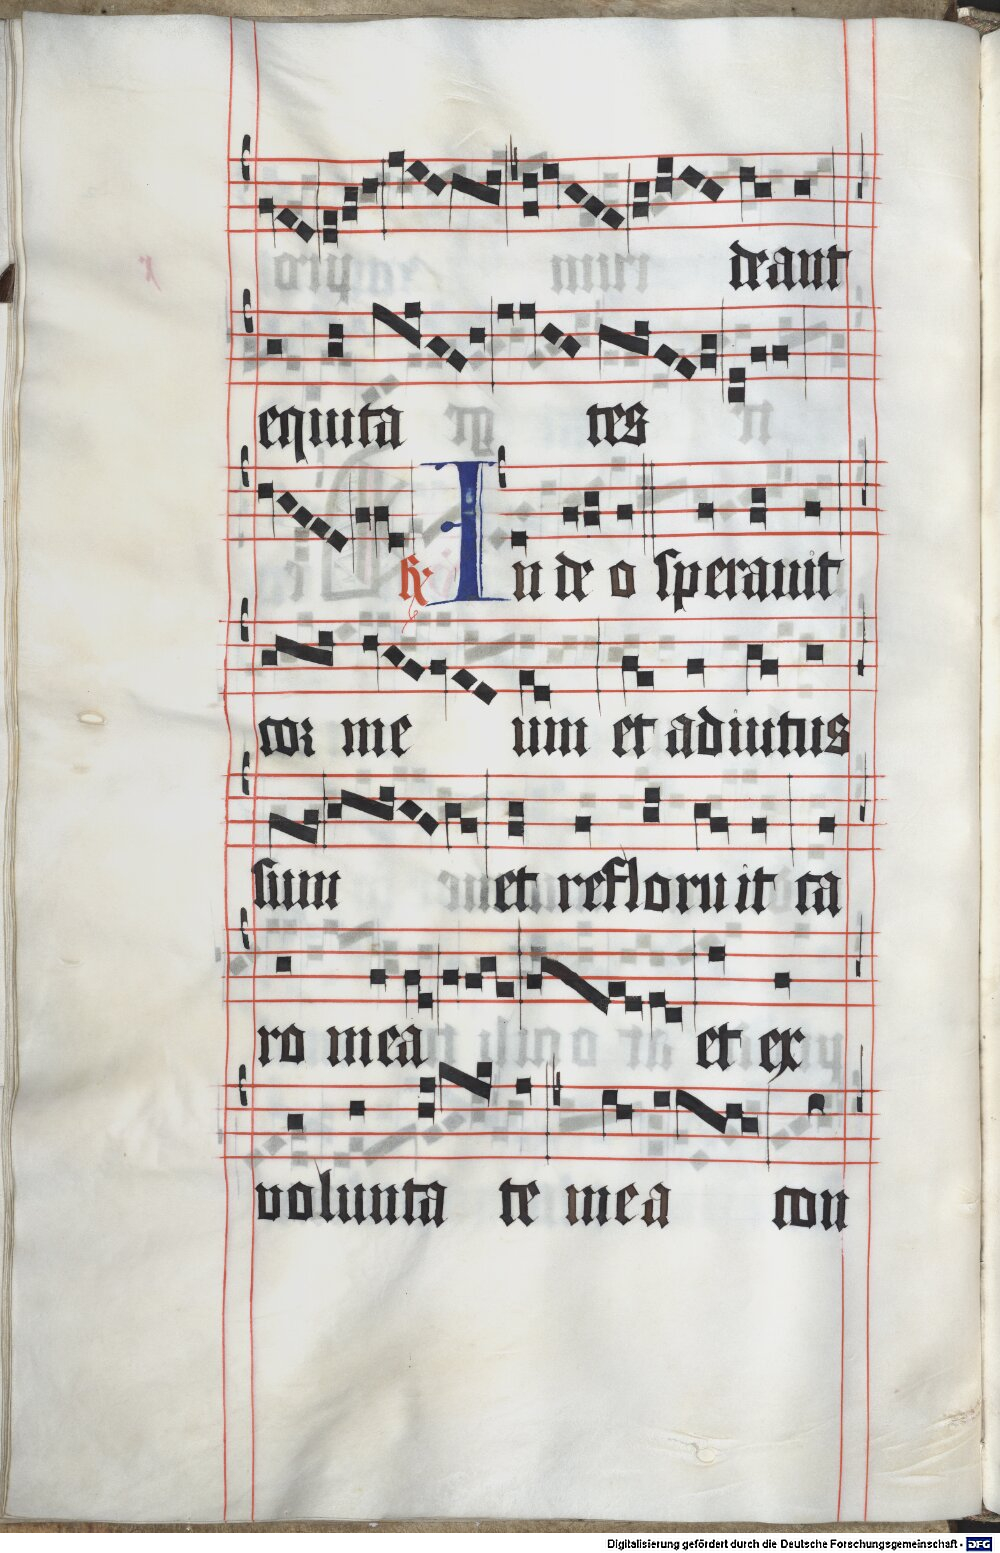 deant
equita tes
℟. In deo sperauit
cor me um et adiutus
sum et refloruit ca
ro mea et ex
volunta te mea con
Digitalisierung gefördert durch die Deutsche Forschungsgemeinschaft - DFG